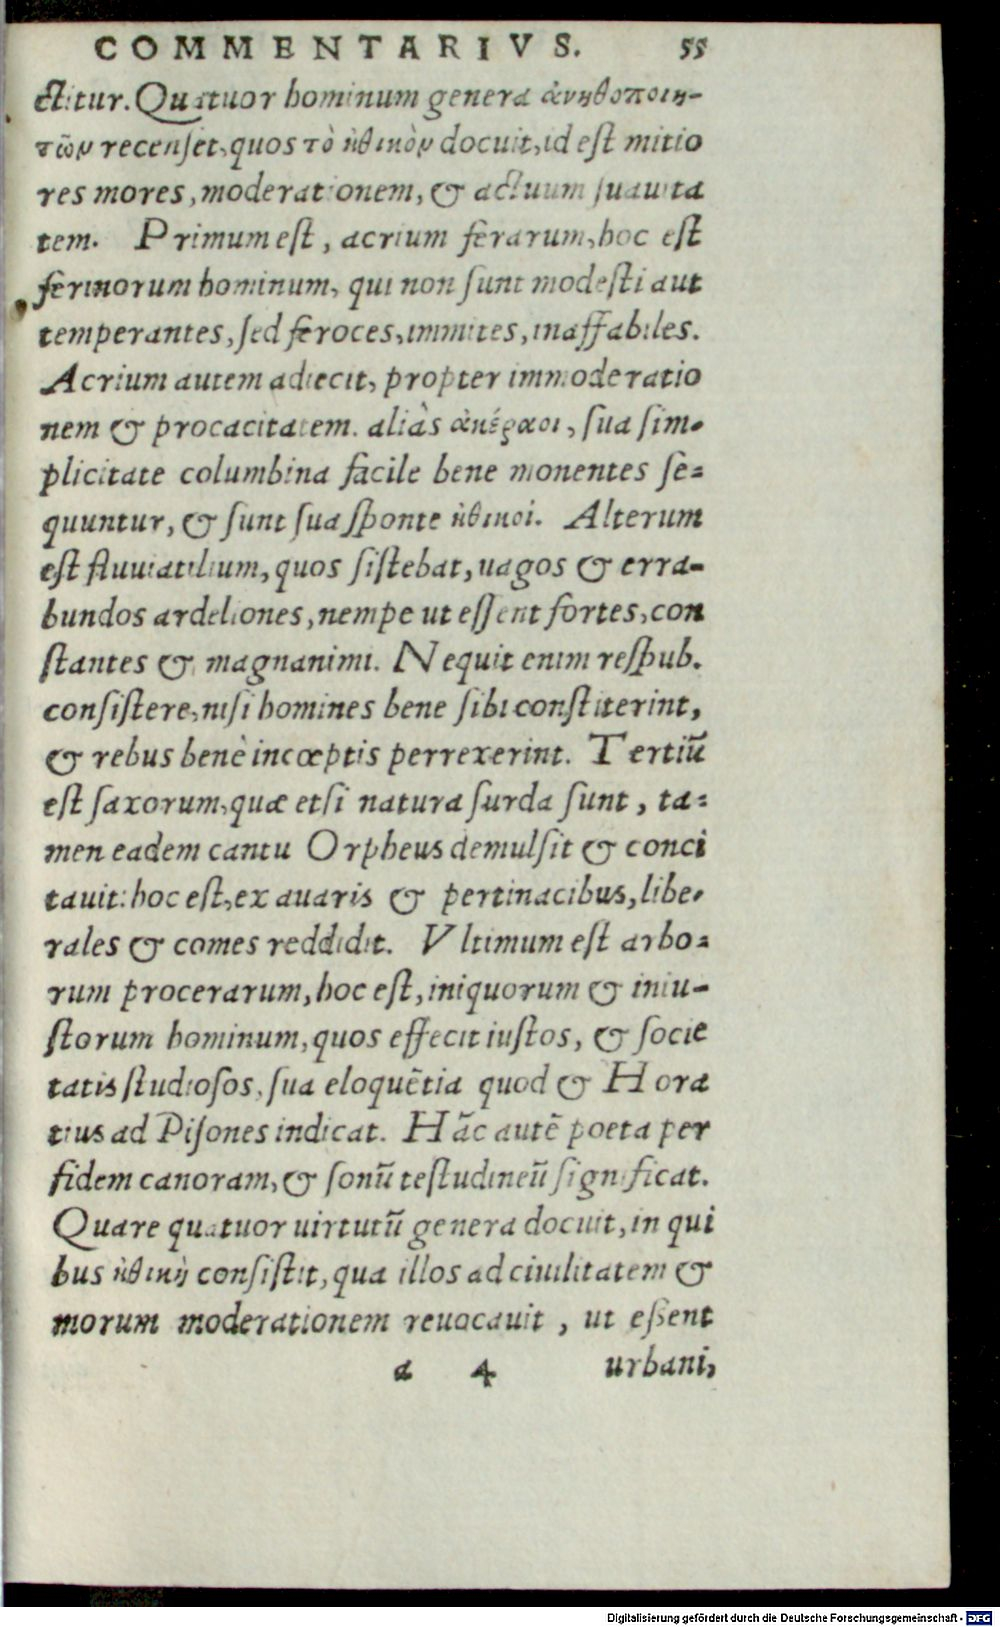 COMMENTARIVS. 55
ctitur. Quatuor hominum genera ἀνηθοποιη-
τῶν recenset, quos τὸ ἠθικὸν docuit, id est mitio
res mores, moderationem, & actuum suauita
tem. Primum est, acrium ferarum, hoc est
ferinorum hominum, qui non sunt modesti aut
temperantes, sed feroces, immites, inaffabiles.
Acrium autem adiecit, propter immoderatio
nem & procacitatem. aliàs ἀκέραοι, sua sim-
plicitate columbina facile bene monentes se=
quuntur, & sunt sua sponte ἠθικοί. Alterum
est fluuiatilium, quos sistebat, uagos & erra-
bundos ardeliones, nempe ut essent fortes, con
stantes & magnanimi. Nequit enim respub.
consistere, nisi homines bene sibi constiterint,
& rebus benè incœptis perrexerint. Tertiũ
est saxorum, quæ etsi natura surda sunt, ta=
men eadem cantu Orpheus demulsit & conci
tauit: hoc est, ex auaris & pertinacibus, libe-
rales & comes reddidit. Vltimum est arbo=
rum procerarum, hoc est, iniquorum & iniu-
storum hominum, quos effecit iustos, & socie
tatis studiosos, sua eloquẽtia quod & Hora
tius ad Pisones indicat. Hãc autẽ poeta per
fidem canoram, & sonũ testudineũ significat.
Quare quatuor uirtutũ genera docuit, in qui
bus ἠθικὴ consistit, qua illos ad ciuilitatem &
morum moderationem reuocauit, ut eßent
a 4 urbani,
Digitalisierung gefördert durch die Deutsche Forschungsgemeinschaft - DFG